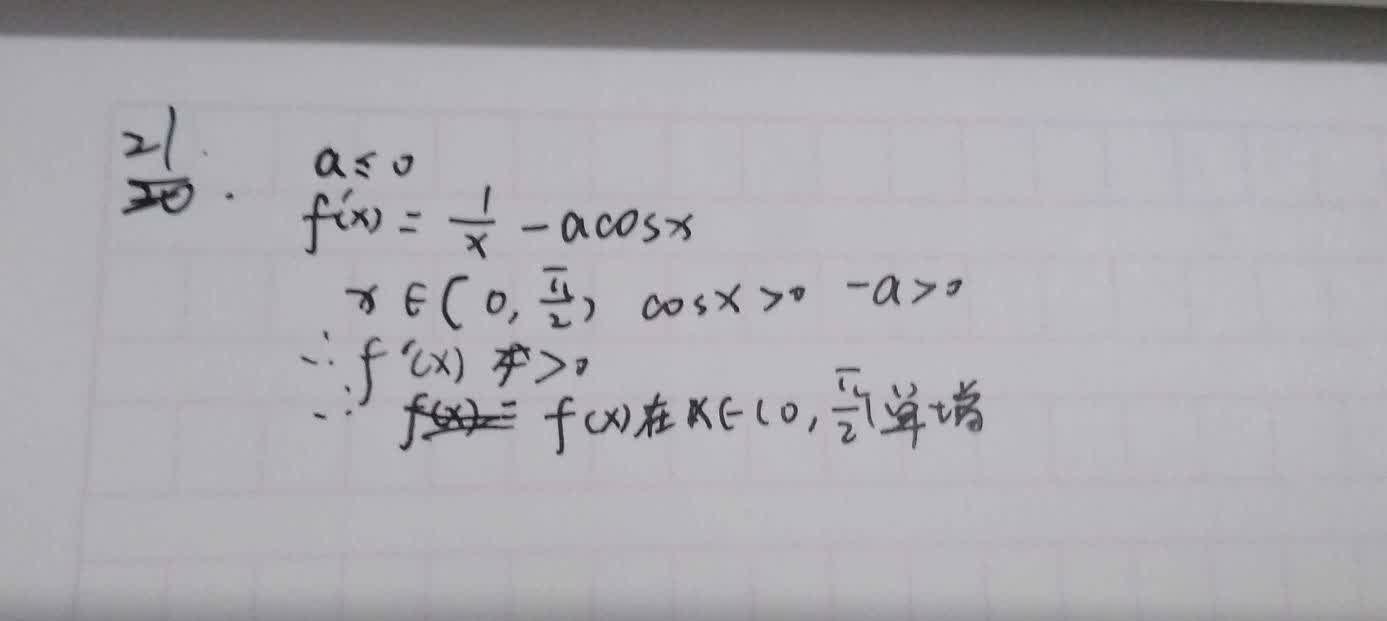 21.
20.
a≤0
f'(x) = 1/x - acosx
x∈(0, π/2) cosx>0 -a>0
∴f'(x) >0
∴ f(x)= f(x)在x∈(0, π/2)单增